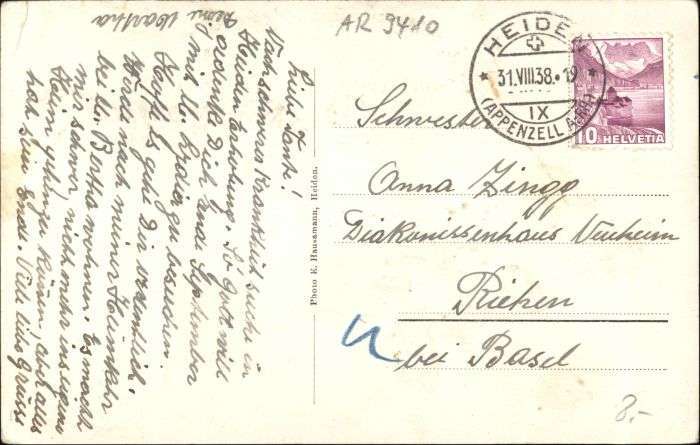 AR 9410
HEIDEN
31.VIII.38.-19
IX
(APPENZELL A.RH.)
10 HELVETIA
Liebe Tante!
Nach schwerer Krankheit suche in
Heiden Erholung. So Gott will
gedenke Dich Ende September
mit Lydia zu besuchen.
Hoffe es gehe Dir ordentlich.
Werde nach meiner Heimkehr
bei Bertha wohnen. Es macht
mir schwer, nicht mehr ins eigene
Heim gehen zu können, aber alles
hat sein End. Viele liebe Grüsse
Deine Martha
Photo E. Haussmann, Heiden.
Schwester
Anna Zingg
Diakonissenhaus Neuheim
Riehen
bei Basel
8.-